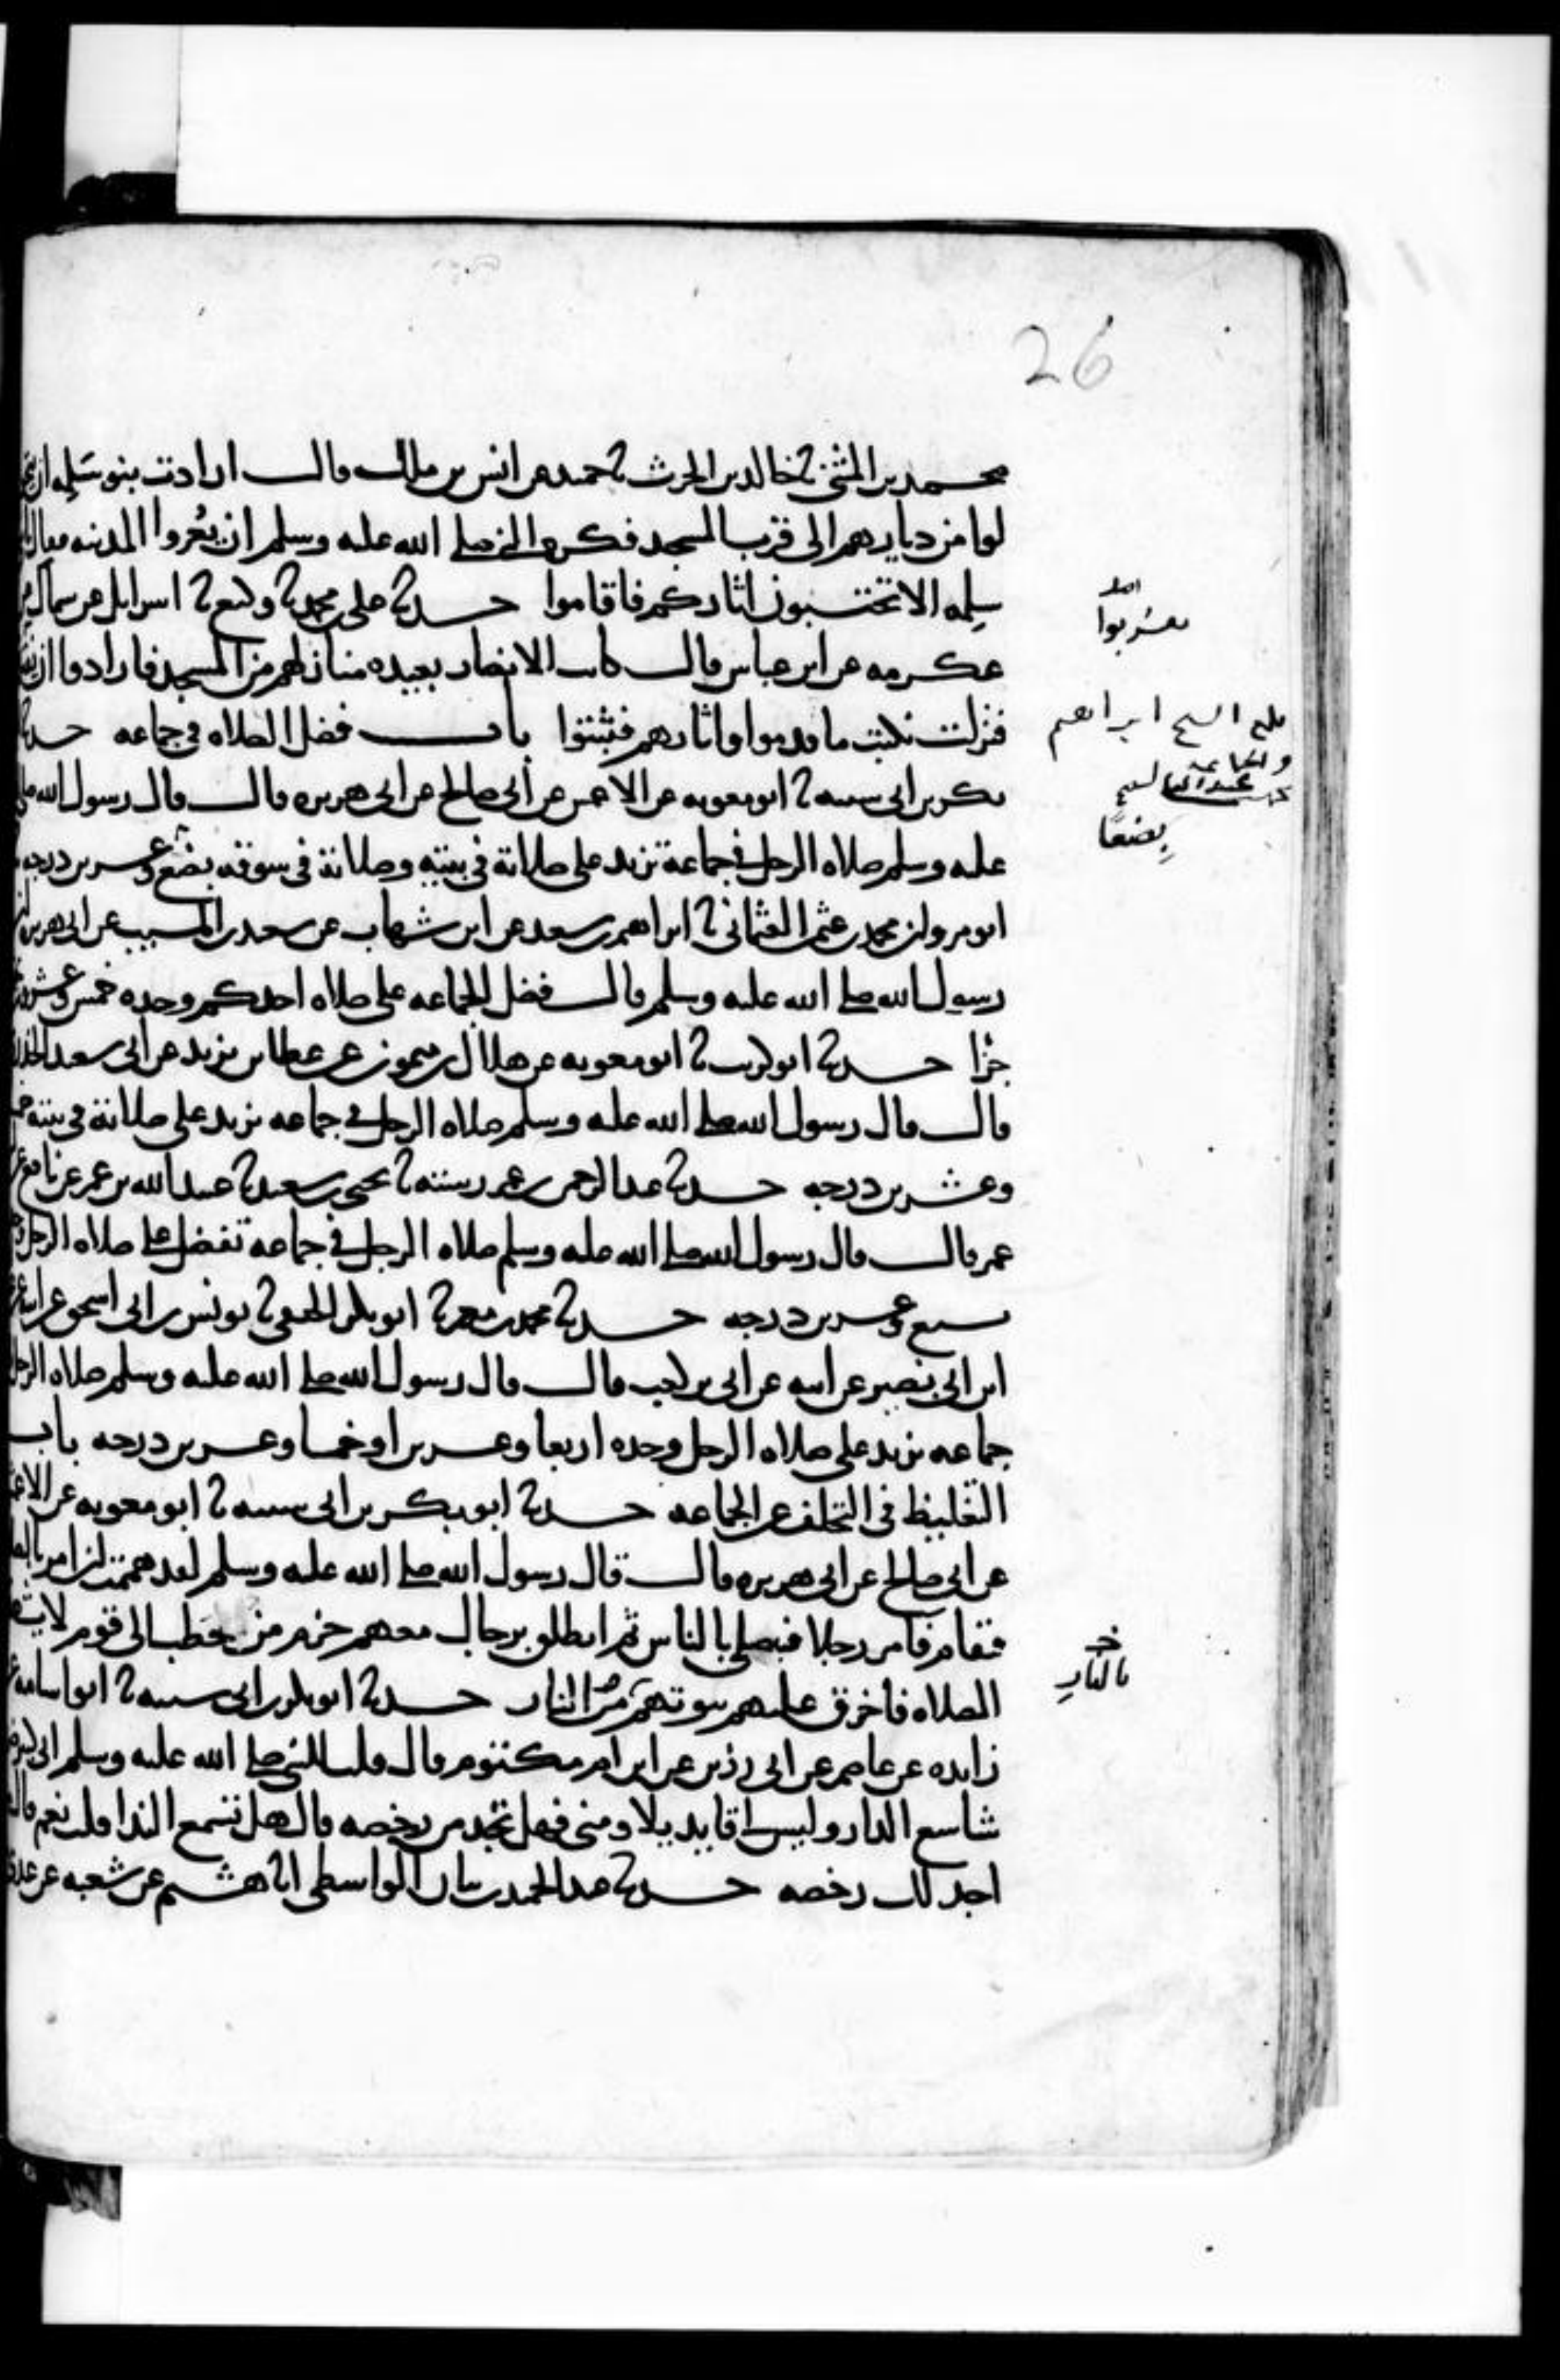 26
محمد بن المثنى ثنا خالد بن الحرث ثنا حميد عن انس بن ملك قال ارادت بنو سلمه ان
لوا من ديارهم الى قرب المسجد فكره النبي صلى الله عليه وسلم ان يعروا المدينه فقال يا
سلمه الا تحتسبون اثاركم فاقاموا حدثنا علي بن محمد ثنا وكيع ثنا اسرايل عن سماك عن
يقتربوا
عكرمه عن ابن عباس قال كانت الانصار بعيده منازلهم من المسجد فارادوا ان
فنزلت نكتب ما قدموا واثارهم فثبتوا باب فضل الصلاه في جماعه حدثنا
بلغ الشيخ ابراهيم
والجماعة
بكر بن ابي شيبه ثنا ابو معويه عن الاعمش عن ابي صالح عن ابي هريره قال قال رسول الله صلى
عليه وسلم صلاه الرجل في جماعة تزيد على صلاته في بيته وصلاته في سوقه بضع وعشرين درجه
بضعًا
ابو مروان محمد بن عثمن العثماني ثنا ابراهيم بن سعد عن ابن شهاب عن سعيد بن المسيب عن ابي هريره ان
رسول الله صلى الله عليه وسلم قال فضل الجماعه على صلاه احدكم وحده خمس وعشرون
جزا حدثنا ابو كريب ثنا ابو معويه عن هلال بن ميمون عن عطا بن يزيد عن ابي سعيد الخدري
قال قال رسول الله صلى الله عليه وسلم صلاه الرجل في جماعه تزيد على صلاته في بيته
وعشرين درجه حدثنا عبد الرحمن بن عمر رسته ثنا يحيى بن سعيد ثنا عبيد الله بن عمر عن نافع عن
عمر قال قال رسول الله صلى الله عليه وسلم صلاه الرجل في جماعه تفضل على صلاه الرجل
سبع وعشرين درجه حدثنا محمد بن معمر ثنا ابو بكر الحنفي ثنا يونس بن ابي اسحق عن ابيه عن
ابن ابي بصير عن ابيه عن ابي بن كعب قال قال رسول الله صلى الله عليه وسلم صلاه الرجل
جماعه تزيد على صلاه الرجل وحده اربعا وعشرين او خمسا وعشرين درجه باب
التغليظ في التخلف عن الجماعه حدثنا ابو بكر بن ابي شيبه ثنا ابو معويه عن الاعمش
عن ابي صالح عن ابي هريره قال قال رسول الله صلى الله عليه وسلم لقد هممت ان امر
فتقام فامر رجلا فيصلي بالناس ثم انطلق برجال معهم حزم من حطب الى قوم لا
الصلاه فاحرق عليهم بيوتهم من النار حدثنا ابو بكر بن ابي شيبه ثنا ابو اسامه عن
خ
بالنارِ
زايده عن عاصم عن ابي رزين عن ابن ام مكتوم قال قلت للنبي صلى الله عليه وسلم اني كبير
شاسع الدار وليس لي قايد يلاومني فهل تجد من رخصه قال هل تسمع الندا قلت نعم قال
اجد لك رخصه حدثنا عبد الحميد بن بيان الواسطي انا هشيم عن شعبه عن عدي